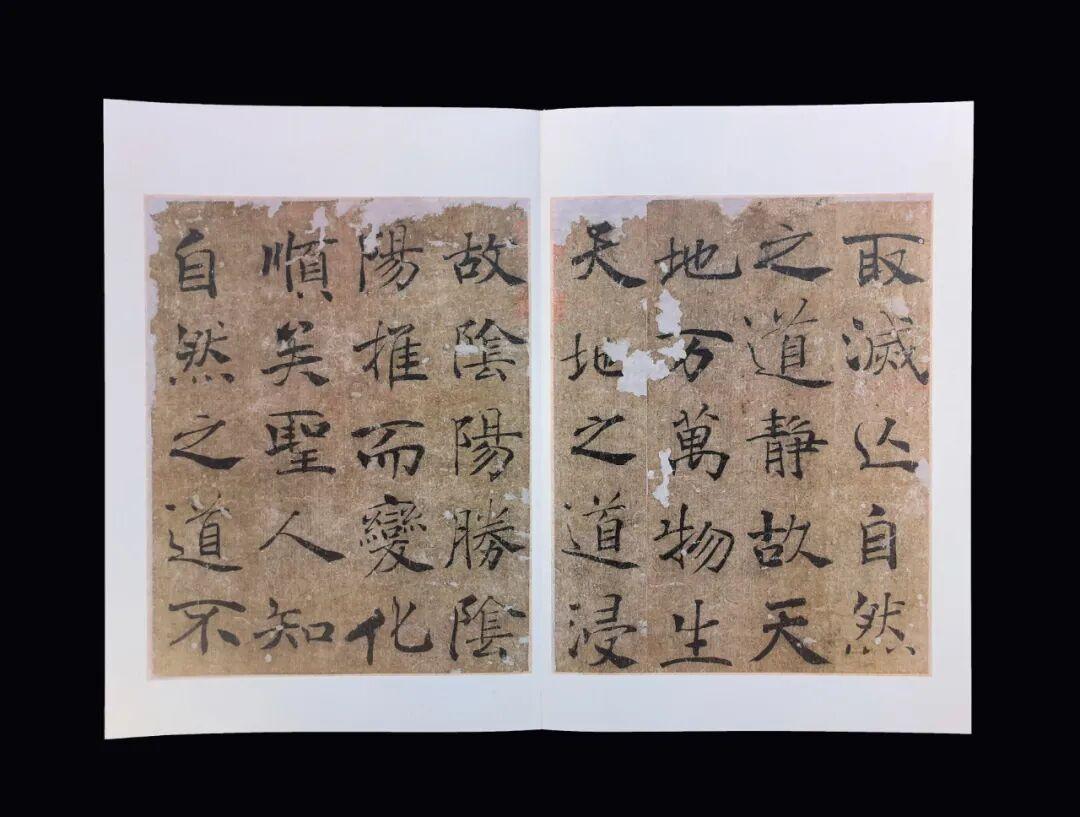 取滅亾自然
之道靜故天
地万萬物生
天地之道浸
故陰陽勝陰
陽推而變化
順矣聖人知
自然之道不